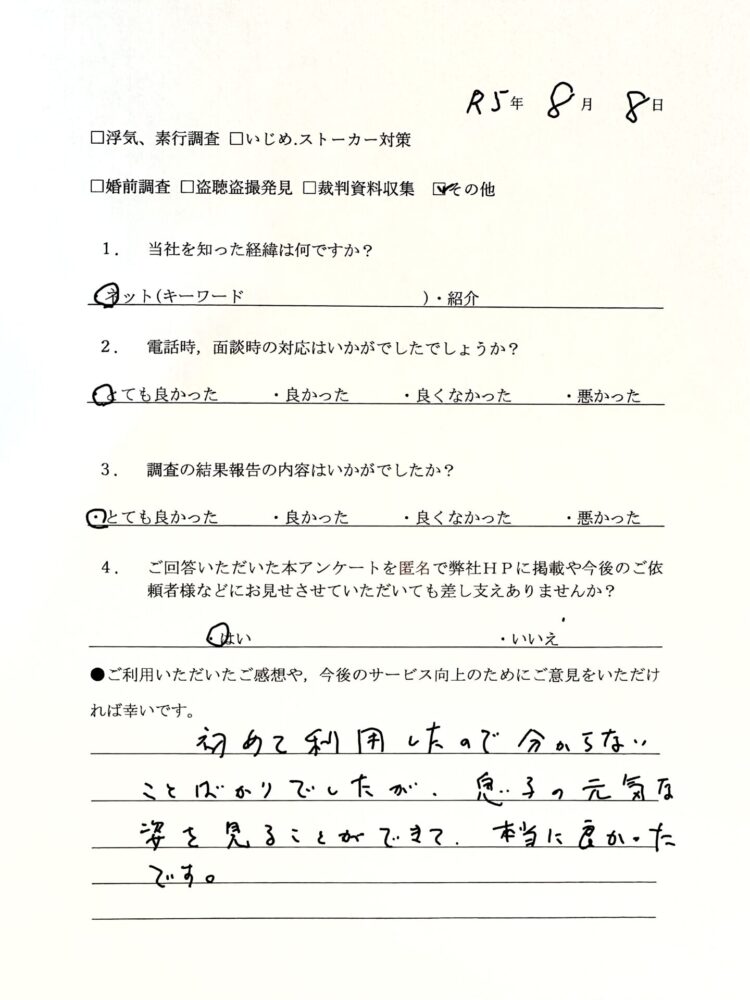 R5年 8月 8日
□浮気、素行調査 □いじめ.ストーカー対策
□婚前調査 □盗聴盗撮発見 □裁判資料収集 ☑その他
1. 当社を知った経緯は何ですか？
ネット(キーワード )・紹介
2. 電話時，面談時の対応はいかがでしたでしょうか？
とても良かった ・良かった ・良くなかった ・悪かった
3. 調査の結果報告の内容はいかがでしたか？
・とても良かった ・良かった ・良くなかった ・悪かった
4. ご回答いただいた本アンケートを匿名で弊社ＨＰに掲載や今後のご依
頼者様などにお見せさせていただいても差し支えありませんか？
・はい ・いいえ
●ご利用いただいたご感想や，今後のサービス向上のためにご意見をいただけ
れば幸いです。
初めて利用したので分からない
ことばかりでしたが、息子の元気な
姿を見ることができて、本当に良かった
です。